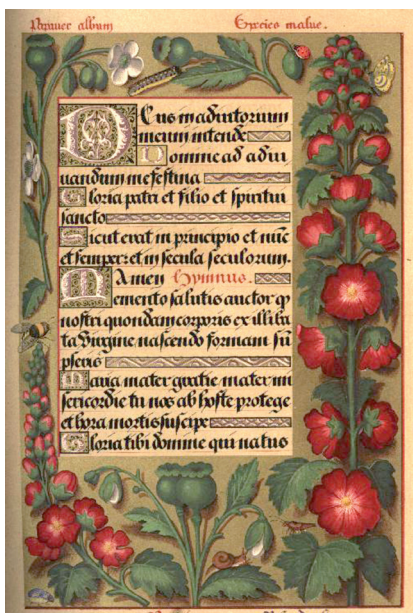 Papaver album
Species malue.
Deus in adiutorium
meum intende
Domine ad adiu
uandum me festina
Gloria patri et filio et spiritui
sancto
Sicut erat in principio et nūc
et semper: et in secula seculorum.
Amen Hymnus.
Memento salutis auctor qp
nostri quondam corporis ex illiba
ta Virgine nascendo formam sū
pseris
Maria mater gratie mater mi
sericordie tu nos ab hoste protege
et hora mortis suscipe
Gloria tibi domine qui natus